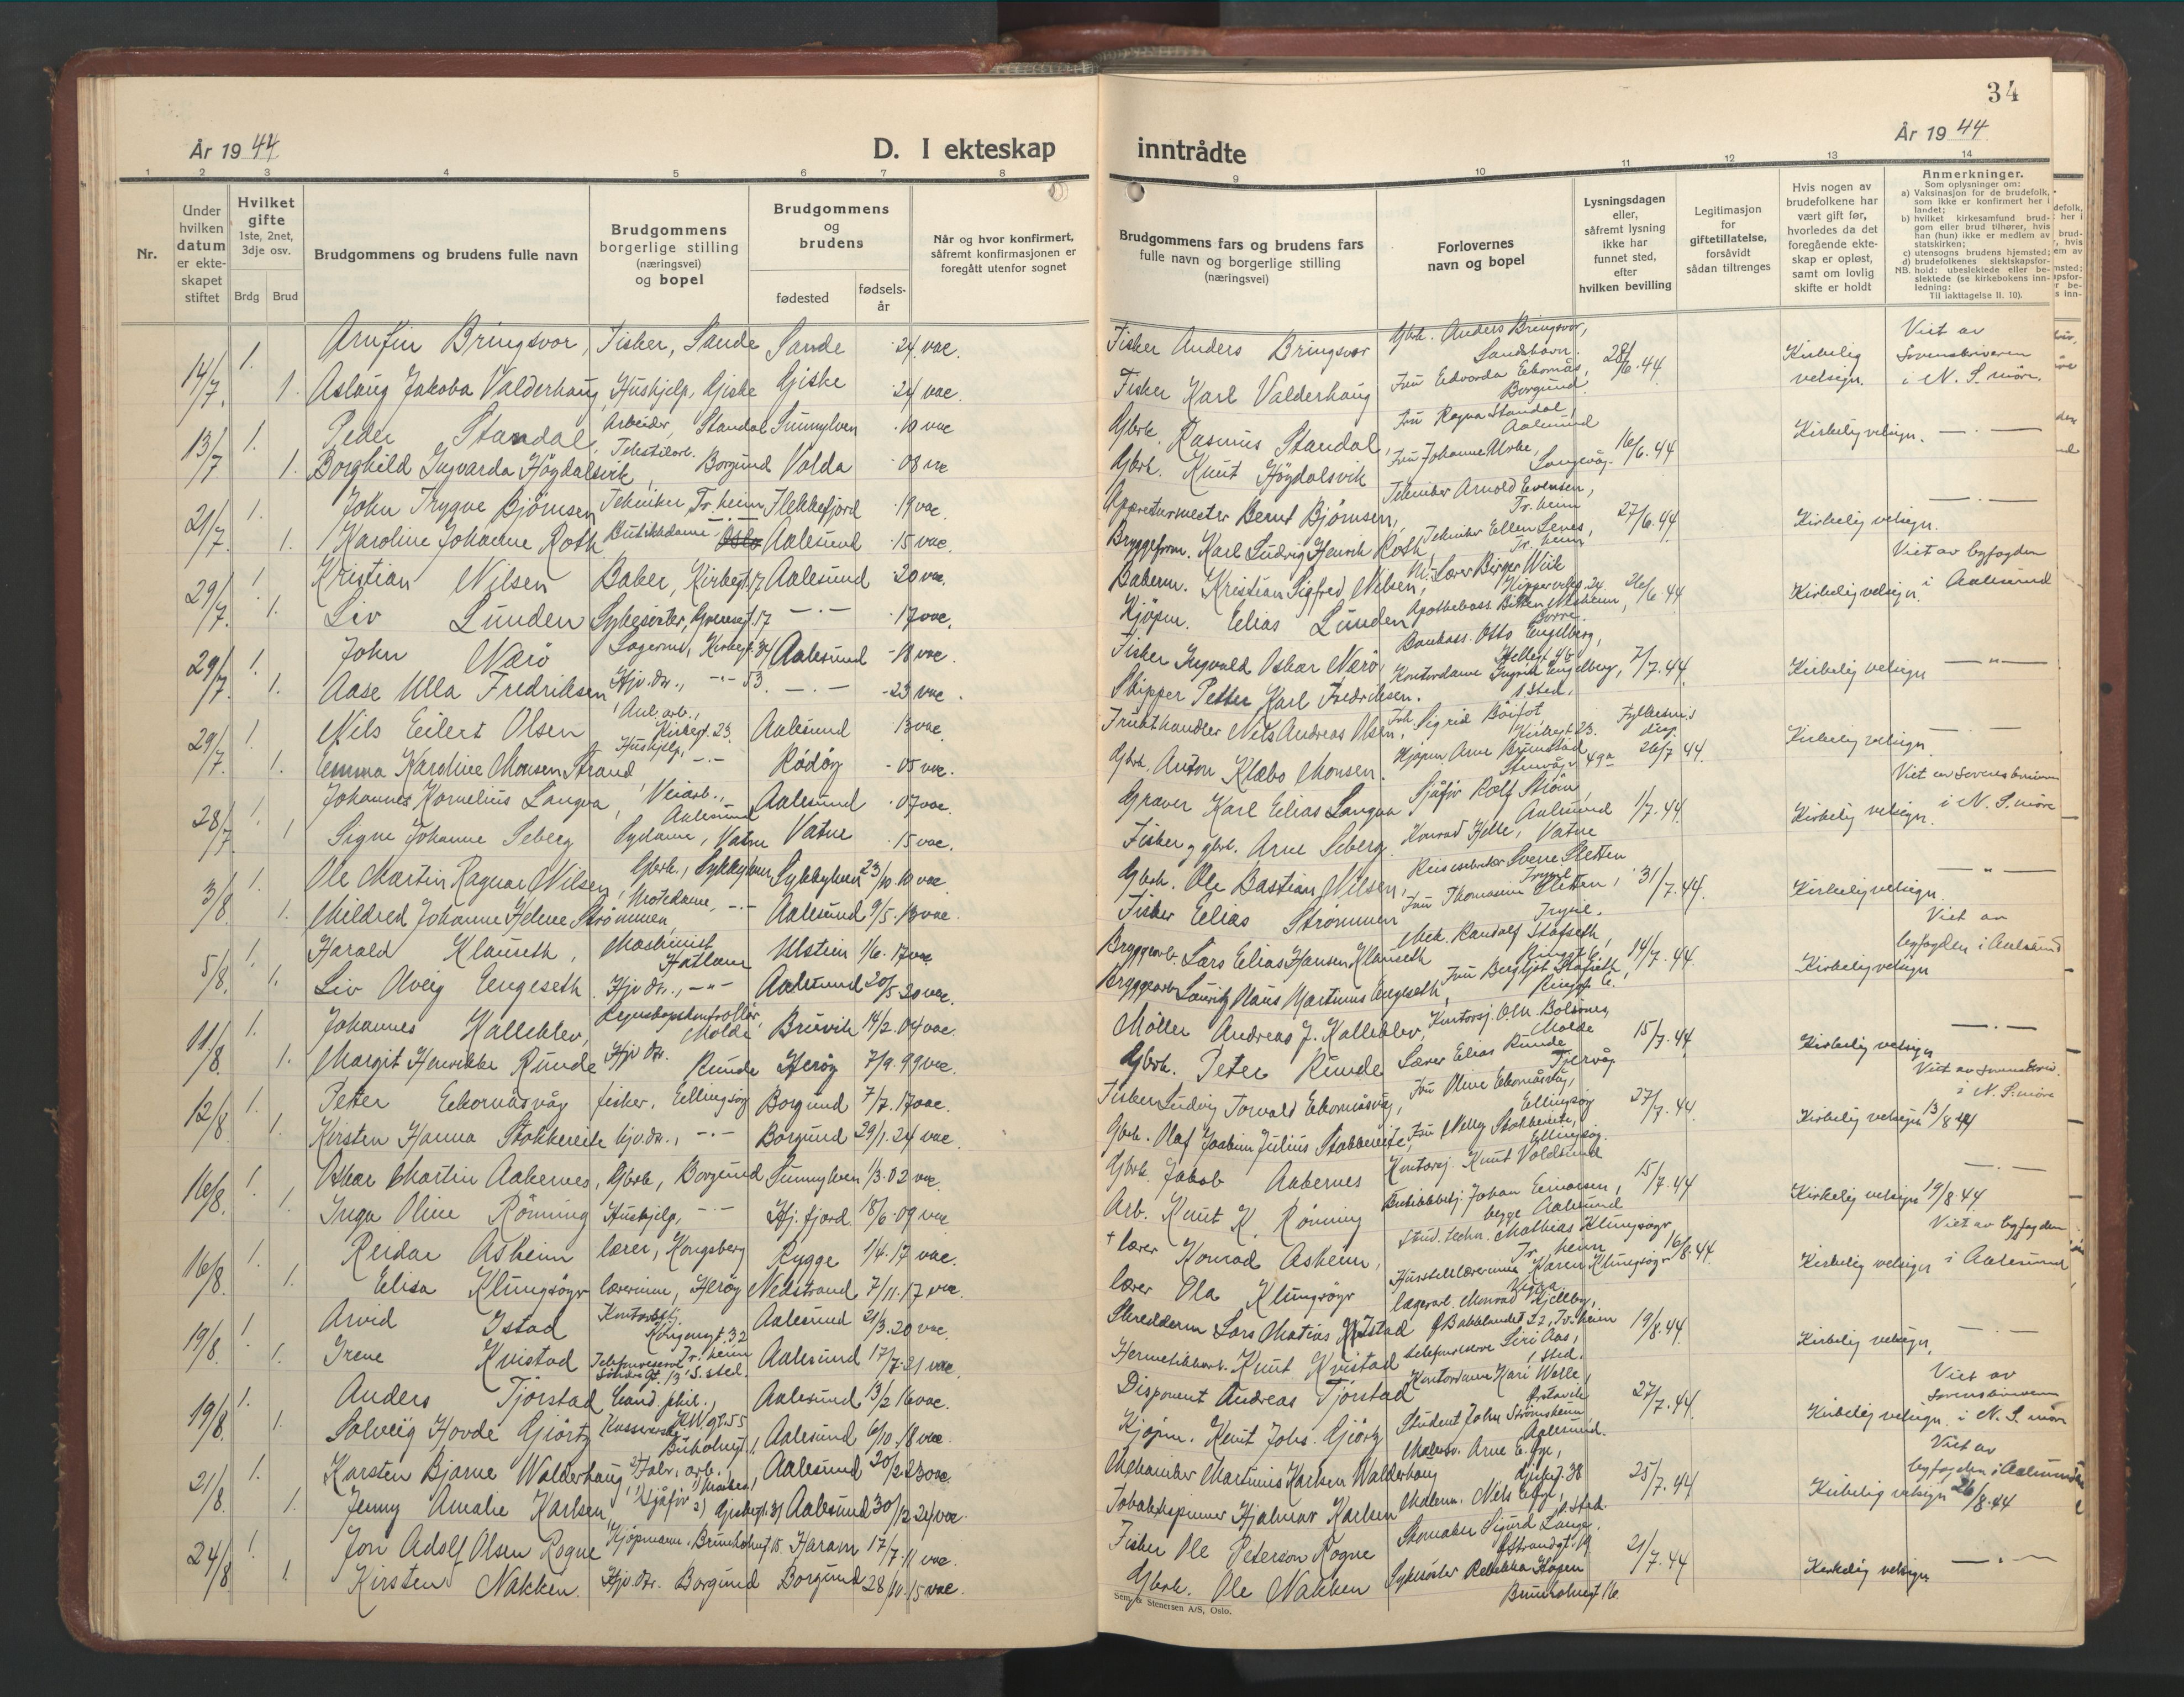 34
År 1944
D. I ekteskap
inntrådte
År 1944
1 2 3 4 5 6 7 8
9 10 11 12 13 14
Nr.
Under hvilken datum er ekteskapet stiftet
Hvilket gifte 1ste, 2net, 3dje osv.
Brdg Brud
Brudgommens og brudens fulle navn
Brudgommens borgerlige stilling (næringsvei) og bopel
Brudgommens og brudens
fødested
fødselsår
Når og hvor konfirmert, såfremt konfirmasjonen er foregått utenfor sognet
Brudgommens fars og brudens fars fulle navn og borgerlige stilling (næringsvei)
Forlovernes navn og bopel
Lysningsdagen eller, såfremt lysning ikke har funnet sted, efter hvilken bevilling
Legitimasjon for giftetillatelse, forsåvidt sådan tiltrenges
Hvis nogen av brudefolkene har vært gift før, hvorledes da det foregående ekteskap er opløst, samt om lovlig skifte er holdt
Anmerkninger.
Som oplysninger om:
a) Vaksinasjon for de brudefolk, som ikke er konfirmert her i landet;
b) hvilket kirkesamfund brudgom eller brud tilhører, hvis han (hun) ikke er medlem av statskirken;
c) utensogns brudens hjemsted;
d) brudefolkenes slektskapsforhold: ubeslektede eller beslektede (se kirkebokens innledning: Til iakttagelse II. 10).
NB.
14/7. 1. Arnfin Bringsvor, Fisker, Sande Sande 24 vac. Fisker Anders Bringsvor Gbrk. Anders Bringsvor, Sandshavn. 28/6.44 Kirkelig velsign. Viet av Sorenskriveren i N. S. møre.
1. Aslaug Jakoba Valderhaug, Hushjelp, Giske Giske 24 vac. Fisker Karl Valderhaug Borgund.
13/7 1. Peder Standal, Arbeider, Standal Sunnylven 10 vac Gbrk. Rasmus Standal, Fru Ragna Standal, Aalesund 16/6.44 Kirkelig velsign. — . —
1. Borghild Ingvarda Högdalsvik, Tekstilarb. Borgund Volda 08 vac Gbrk. Knut Högdalsvik Langevåg.
21/7. 1. John Trygve Bjömsen Tekniker, Tr.heim Flekkefjord 19 vac. Bernt Bjömsen, Tekniker Arnold Evensen, Tr.heim 27/6.44 Kirkelig velsign. — . —
1. Karoline Johanne Roth Butikkdame Oslo Aalesund 15 vac. Bryggeform. Karl Ludvig Henrik Roth, Tr.heim
29/7. 1. Kristian Nilsen Baker, Kirkegt. 17 Aalesund 20 vac. Bakerm. Kristian Sigfred Nilsen, Lærer Birger Wiik 26/6.44 Kirkelig velsign. Viet av byfogden i Aalesund
1. Liv Lunden Sykesöster, 17 — . — 17 vac. Kjöpm. Elias Lunden
29/7. 1. John Nærö Aalesund 18 vac. Fisker Ingvald Oskar Nærö, Bankass. Otto Engelberg, 7/7.44 Kirkelig velsign — „ —
1. Aase Ulla Fredriksen Hjv. dtr., 53. — . — 23 vac. Skipper Petter Karl Fredriksen. Kontordame Ingrid Engelberg, i sted.
29/7. 1. Nils Eilert Olsen Anl. arb., Kirkegt. 23. Aalesund 13 vac. Frukthandler Nils Andreas Olsen, Kirkegt 23. 26/7 44. Kirkelig velsign. — . —
1. Emma Karoline Monsen Strand Hushjelp, — . — Rödöy 05 vac. Gbrk. Anton Klæbo Monsen. Hjöpm. Arne Brunstad
28/7. 1. Johannes Kornelius Langva, Veiarb., Aalesund Aalesund 07 vac. Graver Karl Elias Langva Sjåför Rolf Ström, Aalesund 1/7.44. Kirkelig velsign. i N. S. møre
1 Signe Johanne Seberg Sydame, Vatne Vatne 15 vac. Fisker og gbrk. Arne Seberg. Konrad Helle, Vatne
3/8. 1. Ole Martin Ragnar Nilsen, Gbrk., Sykkylven Sykkylven 23/10 10 vac. Gbrk. Ole Bastian Nilsen, Sverre Sletten 31/7.44. Kirkelig velsign. — „ —
1. Mildred Johanne Helene Strömmen, Motedame, — . — Aalesund 9/5. 13 vac. Fisker Elias Strömmen Fru Thomasine Sletten, Trysil.
5/8. 1. Harald Klauseth, Maskinist Hatland Ulstein 1/6. 17 vac. Bryggearb. Lars Elias Hansen Klauseth Mek. Randolf Stafseth, 14/7.44. Kirkelig velsign Viet av byfogden i Aalesund
1. Liv Aveig Engeseth Hjv. dtr., — „ — Aalesund 20/5 20 vac. Bryggearb. Lauritz Klaus Martinus Engeseth, Fru Bergljot Stafseth,
11/8. 1. Johannes Kalleklev, Regnskapskontrollör, Molde Bruvik 14/2. 04 vac. Möller Andreas J. Kalleklev, Molde 15/7.44 Kirkelig velsign — . —
1. Margit Henrikke Runde Hjv. dtr. Runde Heröy 7/9. 99 vac. Gbrk. Peter Runde Lærer Elias Runde Tjervåg
12/8. 1. Peter Eekornåsvåg fisker, Ellingsöy Borgund 7/7. 17 vac. Fisker Ludvig Torvald Eekornåsvåg, Fru Oline Eekornåsvåg, Ellingsöy 27/7.44 Kirkelig velsign 13/8 44 i N. S. møre
1. Kirsten Hanna Stokkereite hjv. dtr., — . — Borgund 29/1. 24 vac. Gbrk. Olaf Joakim Julius Stokkereite, Fru Nelly Stokkereite, Ellingsöy.
16/8. 1. Oskar Martin Aakernes, Gbrk, Borgund Sunnylven 1/3. 02 vac. Gbrk. Jakob Aakernes Kontorsj. Knut Voldsund 15/7.44 Kirkelig velsign 19/8.44 — . —
1. Inga Oline Rönning Hushjelp, — . — Hj. fjord 18/6. 09 vac Arb. Knut K. Rönning Johan Einarsen, begge Aalesund
16/8. 1. Reidar Asheim lærer, Kongsberg Rygge 1/4. 17 vac. + lærer Konrad Asheim, stud. techn. Mathias Klungsöyr, Tr. heim 16/8.44. Kirkelig velsign Viet av byfogden i Aalesund
1. Elisa Klungsöyr lærerinne, Heröy Nedstrand 7/11. 17 vac. lærer Ola Klungsöyr Husstellærerinne Karen Klungsöyr
19/8. 1. Arvid Ystad Kontorbetj. Kongensgt. 32 Aalesund 21/3. 20 vac. Skredderm Lars Matias Ystad Bakklandet 22, Tr.heim 19/8.44 Kirkelig velsign, — . —
1. Irene Kvistad Tr.heim Aalesund 17/7. 21 vac. Knut Kvistad Siri Aas, i sted.
19/8. 1. Anders Tjörstad Cand. phil., Aalesund 13/2 16 vac. Disponent Andreas Tjörstad Kontordame Kari Welle, 27/7.44 Kirkelig velsign. Viet av Sorenskriveren i N. S. møre
1. Solveig Hovde Gjörtz Aalesund 6/10. 18 vac. Kjöpm. Knut Johs. Gjörtz Student John Strömsheim Aalesund.
21/8. 1. Karsten Bjarne Walderhaug Fabr. arb. Aalesund 20/2 23 vac. Mekaniker Martinus Karlsen Walderhaug 25/7.44 Kirkelig velsign 26/8.44 Viet av byfogden i Aalesund
1. Jenny Amalie Karlsen, Aalesund 30/12 24 vac. Tobakkspinner Hjalmar Karlsen
24/8 1. Jon Adolf Olsen Rogne Kjöpmann, Brunholmgt 15. Haram 17/7. 11 vac. Fisker Ole Peterson Rogne Skomaker Sigurd Lange, Strandgt. 19 21/7.44 Kirkelig velsign — . —
1. Kirsten Nakken. Hjv. dtr. Borgund Borgund 28/10. 15 vac. Gbrk. Ole Nakken Sykesöster Rebekka Hagen Brunholmgt 16.
Sem & Stenersen A/S, Oslo.